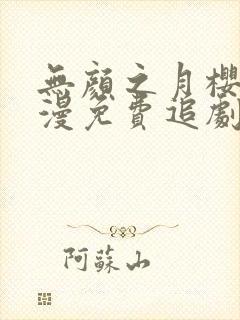 無顏之月櫻
漫免費追劇
阿蘇山